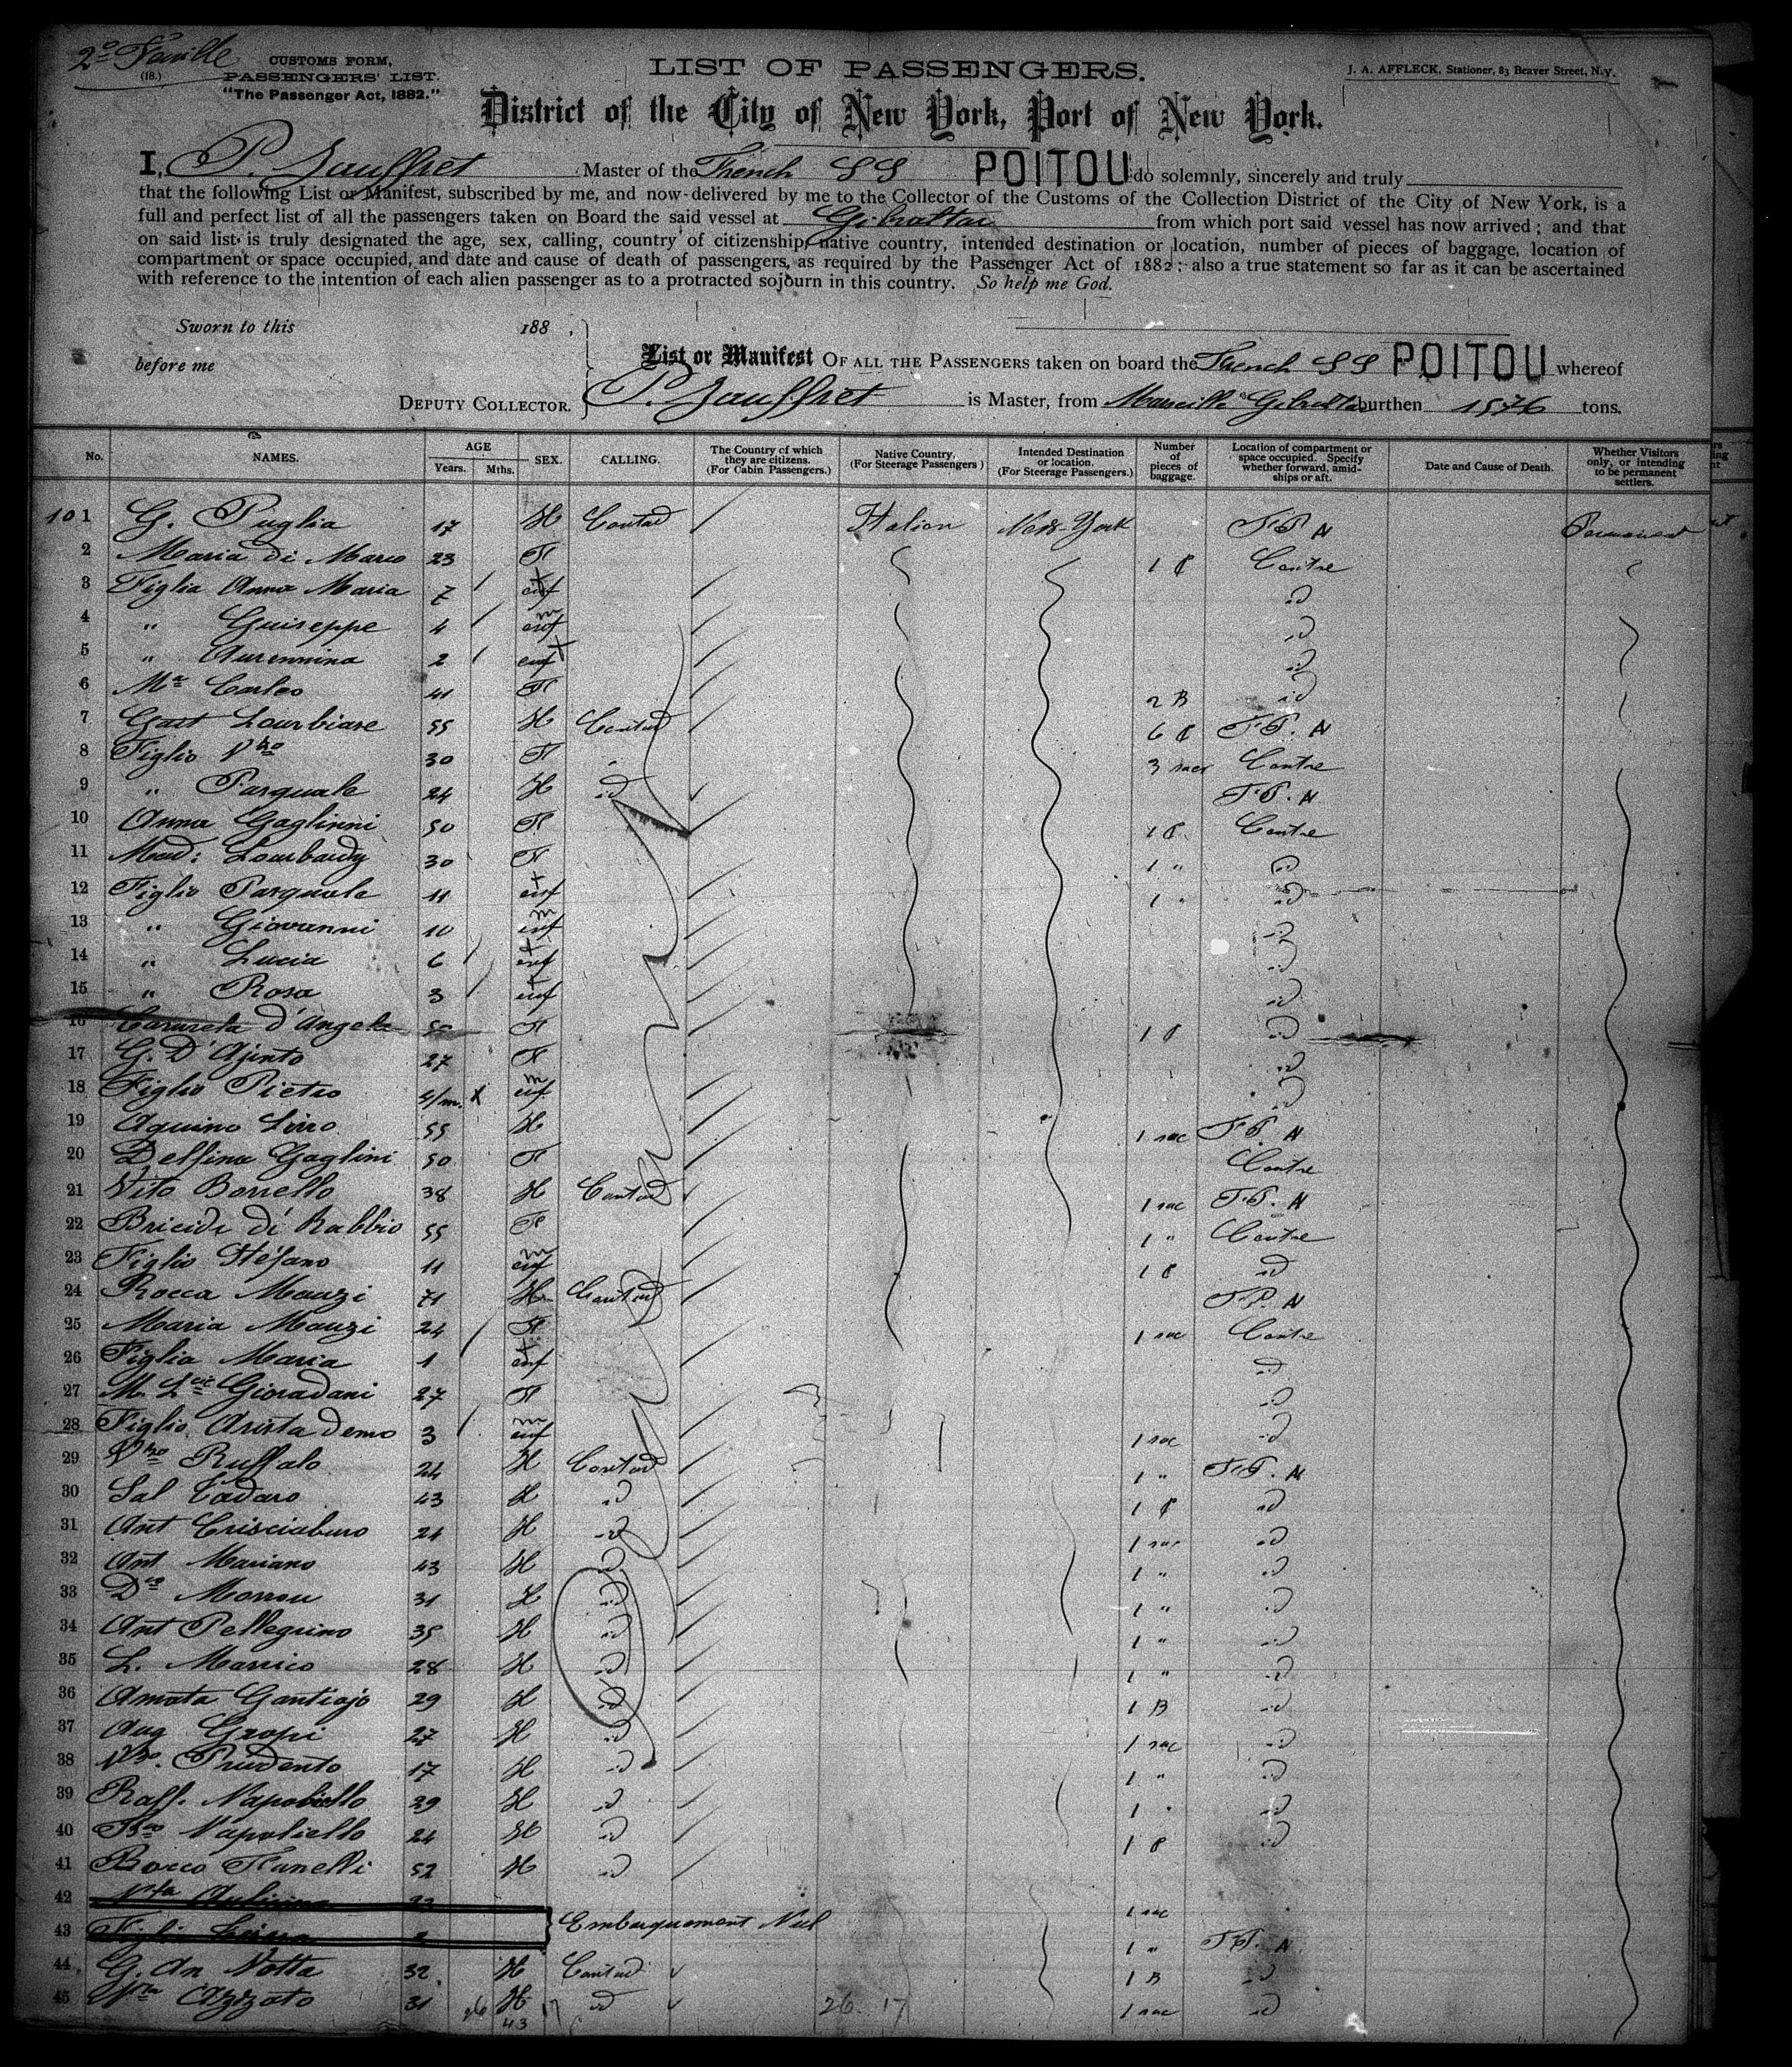 2e Feuille
(18.)
CUSTOMS FORM,
PASSENGERS' LIST.
"The Passenger Act, 1882."
LIST OF PASSENGERS.
J. A. AFFLECK, Stationer, 83 Beaver Street, N.Y.
District of the City of New York, Port of New York.
I, P. Jauffret Master of the French SS POITOU do solemnly, sincerely and truly
that the following List or Manifest, subscribed by me, and now delivered by me to the Collector of the Customs of the Collection District of the City of New York, is a
full and perfect list of all the passengers taken on Board the said vessel at Gibraltar from which port said vessel has now arrived; and that
on said list is truly designated the age, sex, calling, country of citizenship, native country, intended destination or location, number of pieces of baggage, location of
compartment or space occupied, and date and cause of death of passengers, as required by the Passenger Act of 1882; also a true statement so far as it can be ascertained
with reference to the intention of each alien passenger as to a protracted sojourn in this country. So help me God.
Sworn to this 188 .
before me
List or Manifest OF ALL THE PASSENGERS taken on board the French SS POITOU whereof
DEPUTY COLLECTOR. P. Jauffret is Master, from Marseille & Gibraltar burthen 1576 tons.
No. NAMES. AGE Years. Mths. SEX. CALLING. The Country of which they are citizens. (For Cabin Passengers.) Native Country, (For Steerage Passengers) Intended Destination or location. (For Steerage Passengers.) Number of pieces of baggage. Location of compartment or space occupied. Specify whether forward, amidships or aft. Date and Cause of Death. Whether Visitors only, or intending to be permanent settlers.
10 1 G. Puglia 17 H Contad Italien New-York F.P. N Permanent
2 Maria di Marco 23 F 1 C Centre
3 Figlia Anna Maria 7 enf id
4 " Guiseppe 4 m enf id
5 " 2 enf id
6 Ma Carleo 41 F 2 B id
7 55 H Contad 6 C F.P. N
8 Figlio Vzo 30 F 3 sacs Centre
9 " Pasquale 24 H id F.P. N
10 Anna Gaglinni 50 F 1 C Centre
11 Mad: Lombardy 30 F 1 " id
12 Figlio Pasquale 11 enf 1 " id
13 " Giovanni 10 m enf id
14 " Lucia 6 enf id
15 " Rosa 3 enf id
16 d'Angelo 50 F 1 C id
17 G. D'Ajinto 27 F id
18 Figlio Pietro m enf id
19 Aquino 55 H 1 sac F.P. N
20 Delfina Gaglini 50 F Centre
21 Vito Borrello 38 H Contad 1 sac F.P. N
22 di Rabbio 55 F 1 " Centre
23 Figlio Stéfano 11 m enf 1 C id
24 Rocca Manzi 71 H Contad F.P. N
25 Maria Manzi 24 F 1 sac Centre
26 Figlia Maria 1 enf id
27 Gioradani 27 F id
28 Figlio Aristademo 3 m enf 1 sac id
29 Vzo Ruffalo 24 H Contad 1 " F.P. N
30 Sal Cadaro 43 H id 1 C id
31 Ant 24 H id 1 sac id
32 Ant Mariano 43 H id 1 " id
33 Dco Morrou 31 H id 1 " id
34 Ant Pellegrino 35 H id 1 " id
35 L. Marrico 28 H id 1 " id
36 Amata Gantiajo 29 H id 1 B id
37 Aug Gropi 27 H id 1 sac id
38 Vzo. Prudento 17 H id 1 " id
39 Raff. Napoliello 29 H id 1 " id
40 Napoliello 24 H id 1 C id
41 Rocco Funelli 52 H id
42 1 sac
43 Figlio Embarquement Nul 1 " F.P. N
44 G. An Notta 32 H Contad 1 B id
45 Azzato 31 26 H 17 id 26 17 1 sac id
43